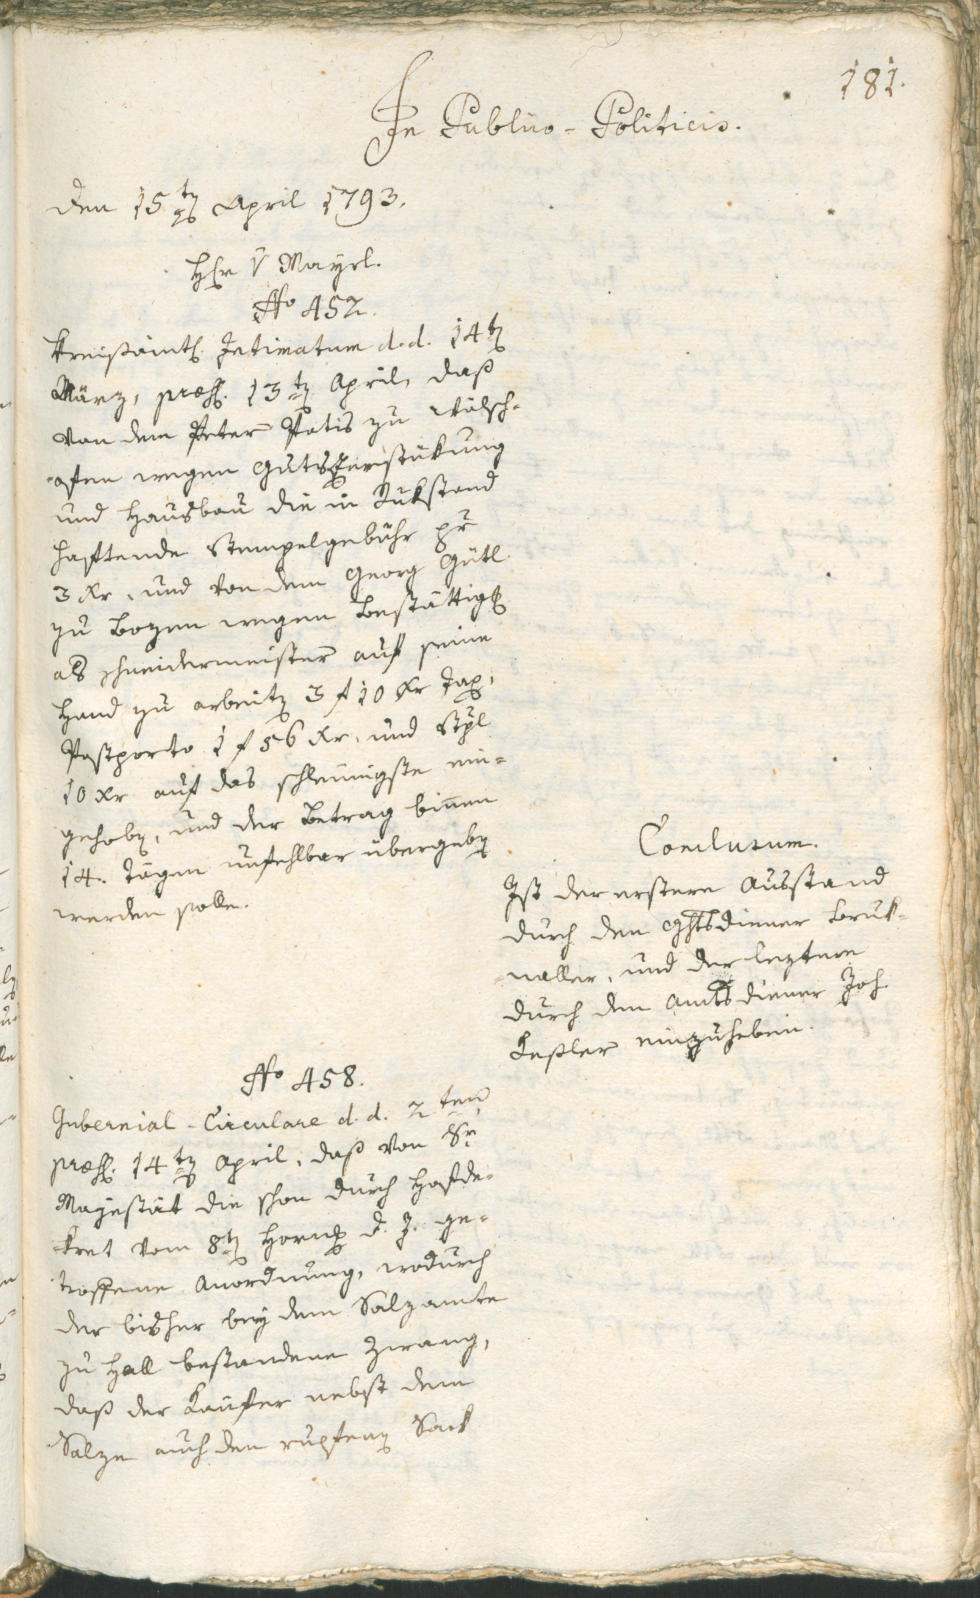 181.
In Publico-Politicis.
Den 15ten April 1793.
Hr v Mayrl.
No 452.
Kreisämtl. Intimatum d.d. 14ten
März, præs. 13ten April, daß
von dem Peter Patis zu Wälsch-
ofen wegen Gutszerstükung
und Hausbau die in Rukstand
haftende Stempelgebühr pr
3 Kr, und von dem Georg Gütl
zu Bozen wegen Bestättig
als Schneidermeister auf seine
Hand zu arbeiten 3 f 10 Kr Tax,
Postporto 1 f 56 Kr, und Stpl
10 Kr auf das schleinigste ein-
gehoben, und der Betrag binnen
14. Tägen unfehlbar übergeben
werden solle.
Conclusum.
Ist der erstere Ausstand
durch den Ghtsdiener Bruk-
naller, und der leztere
durch den Amtsdiener Joh.
Keßler einzuheben.
No 458.
Gubernial-Circulare d.d. 2ten
præs. 14ten April, daß von Sr
Majestät die schon durch Hofde-
kret vom 8ten Hornung d. J. ge-
troffene Anordnung, wodurch
der bisher bey dem Salzamte
zu Hall bestandene Zwang,
daß der Käufer nebst dem
Salze auch den rupfenen Sack